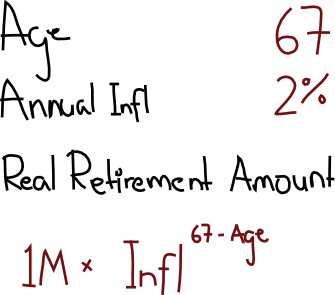 Age 67
Annual Infl 2%
Real Retirement Amount
1M × Infl^67-Age